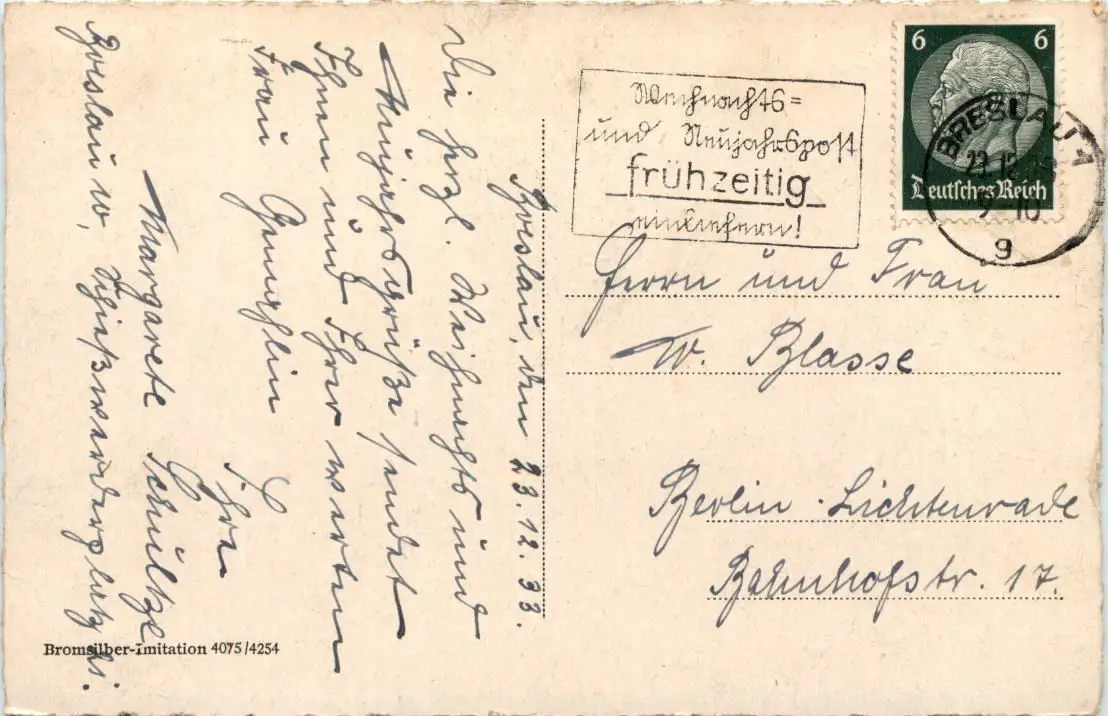 Breslau, den 23.12.33.
Die herzl. Weihnachts und
Neujahrsgrüße sendet
Ihnen und Ihrer werten
Frau Gemahlin
Ihre
Margarete Schultze
Breslau 10,
Weihnachts=
und Neujahrspost
frühzeitig
einliefern!
6 6
Deutsches Reich
BRESLAU 1
9-10
g
Herrn und Frau
W. Blasse
Berlin-Lichtenrade
Bahnhofstr. 17.
Bromsilber-Imitation 4075/4254